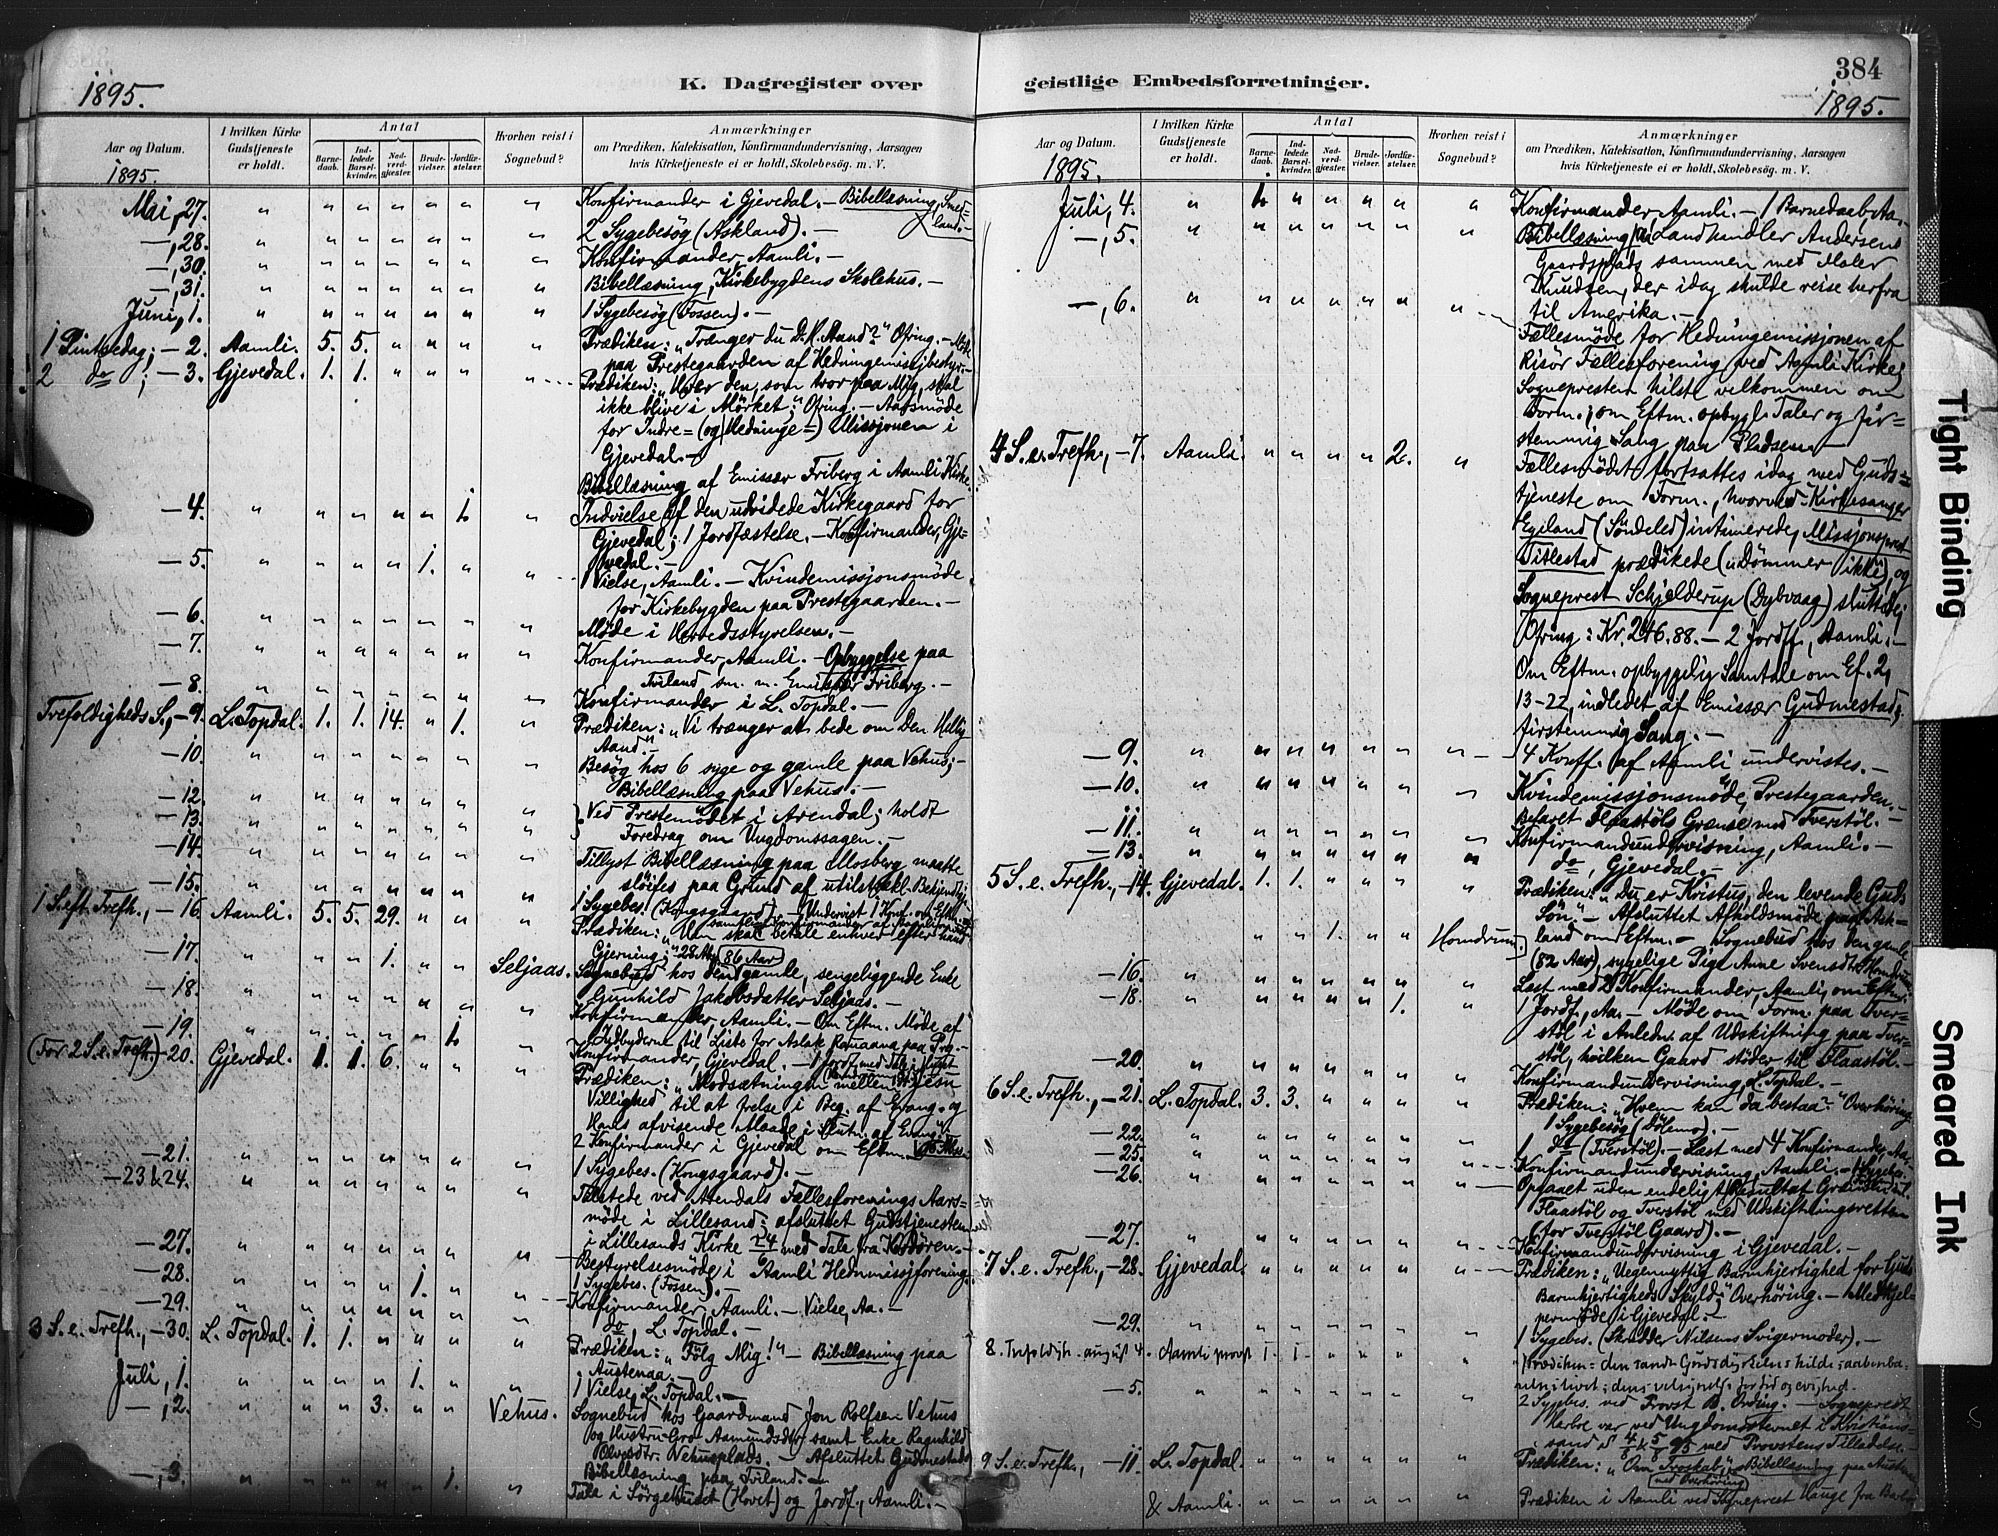 384
1895.
K. Dagregister over
geistlige Embedsforretninger.
1895.
Aar og Datum.
1895.
I hvilken Kirke Gudstjeneste er holdt.
Antal
Barnedaab.
Indledede Barselkvinder.
Nadverdgjester.
Brudevielser.
Jordfæstelser.
Hvorhen reist i Sognebud?
Anmærkninger
om Prædiken, Katekisation, Konfirmandundervisning, Aarsagen
hvis Kirketjeneste ei er holdt, Skolebesøg. m. V.
Mai, 27. " " " " " " " Konfirmander i Gjevedal. – Bibellæsning, Smedland. –
–, 28. " " " " " " " 2 Sygebesøg (Askland). –
–, 30. " " " " " " " Konfirmander, Aamli. –
–, 31. " " " " " " " Bibellæsning, Kirkebygdens Skolehus. –
Juni, 1. " " " " " " " 1 Sygebesøg (Fossen). –
1 Pintsedag; – 2. Aamli. 5. 5. " " " " Prædiken: "Trænger du D. H. Aand?" Ofring. – Møde
paa Prestegaarden af Hedningemissjbestyr. –
2 do ; – 3. Gjevedal. 1. 1. " " " " Prædiken: "Hver den, som tror paa Mig, skal
ikke blive i Mørket;" Ofring. – Aarsmøde
for Indre= (og Hedninge=) Missjonen i
Gjevedal. –
Bibellæsning af Emissær Friberg i Aamli Kirke.
– 4. " " " " " 1. " Indvielse af den udvidede Kirkegaard for
Gjevedal; 1 Jordfæstelse. – Konfirmander, Gjevedal. –
– 5. " " " " 1. " " 1 Vielse, Aamli. – Kvindemissjonsmøde
for Kirkebygden paa Prestegaarden. –
– 6. " " " " " " " Møde i Herredsstyrelsen. –
– 7. " " " " " " " Konfirmander, Aamli. – Opbyggelse paa
Tviland sm. m. Emissær Friberg. –
– 8. " " " " " " " Konfirmander i L. Topdal. –
Trefoldigheds S., – 9. L. Topdal. 1. 1. 14. " 1. " Prædiken: "Vi trænger at bede om Den Hellig
Aand." –
– 10. " " " " " " " Besøg hos 6 syge og gamle paa Vehus; –
Bibellæsning paa Vehus. –
– 12. " " " " " " " Ved Prestemødet i Arendal; holdt
– 13. " " " " " " " Foredrag om Ungdomssagen. –
– 14. " " " " " " " Tillyst Bibellæsning paa Mosberg maatte
sløifes paa Grund af utilstrækl.
– 15. " " " " " " " 1 Sygebes. (Kongsgaard). – Undervist 1 Konf. om Eftm.
1 S. eft. Trefh., – 16. Aamli. 5. 5. 29. " " " Prædiken: "Han skal betale enhver efter hans
Gjerning;"
– 17. " " " 1. " " Seljaas. Sognebud hos den gamle, (86 Aar) sengeliggende Enke
Gunhild Jakobsdatter Seljaas. –
– 18. " " " " " " " Konfirmander, Aamli. – Om Eftm. Møde af
til Liste for Aslak
– 19. " " " " " 1. " Konfirmander, Gjevedal. – 1 Jordf. med Tale i
(For 2 S. e. Trefh.) – 20. Gjevedal. 1. 1. 6. " " " Prædiken: "Modsætningen mellem Jesu
Villighed til at frelse i Beg. af Evang. og
Hans afvisende Maade i Slutn. af Evang."
2 Konfirmander i Gjevedal om Eftm.
– 21. " " " " " " " 1 Sygebes. (Kongsgaard). –
– 23 & 24. " " " " " " " Tilstede ved Arendals Fællesforenings Aarsmøde
i Lillesand; afsluttet Gudstjenesten
i Lillesands Kirke 24/6 med Tale fra Kordøren. –
– 27. " " " " " " " Bestyrelsesmøde i Aamli Hednmissjforening.
1 Sygebes. (Fossen). –
– 28. " " " " 1. " " Konfirmander, Aamli. – Vielse, Aa. –
– 29. " " " " " " " do, L. Topdal. –
3 S. e. Trefh., – 30. L. Topdal. 1. 1. " " " " Prædiken: "Følg Mig!" – Bibellæsning paa
Austenaa. –
Juli, 1. " " " " 1. " " 1 Vielse, L. Topdal. –
–, 2. " " " 3. " " Vehus. Sognebud hos Gaardmand Jon Rolfsen Vehus
og Hustru Gro Aamundsdtr samt Enke Ragnhild
Olvesdtr. Vehusplads. – Afsluttet Gudmestads
Bibellæsning paa Tviland. –
–, 3. " " " " " 1. " Tale i Sørgehuset (Hovet) og Jordf., Aamli. –
Aar og Datum.
1895.
I hvilken Kirke Gudstjeneste er holdt.
Antal
Barnedaab.
Indledede Barselkvinder.
Nadverdgjester.
Brudevielser.
Jordfæstelser.
Hvorhen reist i Sognebud?
Anmærkninger
om Prædiken, Katekisation, Konfirmandundervisning, Aarsagen
hvis Kirketjeneste ei er holdt, Skolebesøg. m. V.
Juli, 4. " 1. " " " " " Konfirmander Aamli. – 1 Barnedaab, Aa. –
–, 5. " " " " " " " Bibellæsning paa Landhandler Andersens
Gaardsplads sammen med Maler
Knudsen, der idag skulde reise herfra
til Amerika. –
–, 6. " " " " " " " Fællesmøde for Hedningemissjonen af
Risør Fællesforening ved Aamli Kirke;
Sognepresten hilste velkommen om
Form.; om Eftm. opbygl. Taler og firstemmig
Sang paa Pladsen. –
4 S. e. Trefh., – 7. Aamli. " " " " 2. " Fællesmødet fortsattes idag med Gudstjeneste
om Form., hvorved Kirkesanger
Egeland (Søndeled) intimerede, Missjonsprest
Titlestad prædikede (" dømmer ikke"), og
Sogneprest Schjelderup (Dybvaag) sluttede;
Ofring: Kr. 246.88. – 2 Jordf., Aamli. –
Om Eftm. opbyggelig Samtale om Ef. 2,
13–22, indledet af Emissær Gudmestad;
firstemmig Sang. –
– 9. " " " " " " " 4 Konff. af Aamli undervistes. –
– 10. " " " " " " " Kvindemissjonsmøde, Prestegaarden. –
– 11. " " " " " " " Befaret Flaastøls Grænse med Tverstøl. –
Konfirmandundervisning, Aamli. –
– 13. " " " " " " " do, Gjevedal. –
5 S. e. Trefh., – 14. Gjevedal. 1. 1. " " " " Prædiken: "Du er Kristus, den levende Guds
Søn." – Afsluttet Afholdsmøde paa Askland
om Eftm. – Sognebud hos den gamle
" " 1. " " Homdrum. (82 Aar), sygelige Pige Anne Svensdtr. Homdrum.
– 16. " " " " " " " Læst med 2 Konfirmander, Aamli, om Eftm.
– 18. " " " " " 1. " 1 Jordf., Aa. – Møde om Form. paa Tverstøl
i Anledn. af Udskiftning paa Tverstøl,
hvilken Gaard støder til Flaastøl. –
– 20. " " " " " " " Konfirmandundervisning, L. Topdal. –
6 S. e. Trefh., – 21. L. Topdal. 3. 3. " " " " Prædiken: "Hvem kan da bestaa?" Overhøring.
1 Sygebesøg (Dølemo). –
– 22. " " " " " " " 1 do (Tverstøl). – Læst med 4 Konfirmander, Aa.
– 25. " " " " " " " Konfirmandundervisning, Aamli. –
– 26. " " " " " " " Opgaaet uden endeligt Resultat Grænselinien
Flaastøl og Tverstøl med Udskiftningsretten
(for Tverstøl Gaard). –
– 27. " " " " " " " Konfirmandundervisning i Gjevedal. –
7 S. e. Trefh., – 28. Gjevedal. " " " " " " Prædiken: "Uegennyttig Barmhjertighed for Guds
Barmhjertigheds Skyld;" Overhøring. –
i Gjevedal. –
– 29. " " " " " " " 1 Sygebes. (Skrædder Nilsens Svigermoder). –
8. Trefoldigh. august 4. Aamli provst 1. 1. " " " " Prædiken: den sande Gudsdyrkelsens kilde; aabenbarelse
i livet; dens velsignelse for tid og evighed.
– 5. " " " " " " " 2 Sygebes. ved Provst B. Orning. – Sogneprest
Harboe var ved Ungdomsstevnet i Kristianssand
4/8 & 5/8 95 med Provstens Tilladelse. –
9 S. e. Trefh., – 11. L. Topdal. " " " " " " Prædiken: "Om Troskab"; Bibellæsning paa
(med Overhøring)
& Aamli. " " " " " " Prædiken i Aamli ved Sogneprest Hauge fra
Tight Binding
Smeared Ink